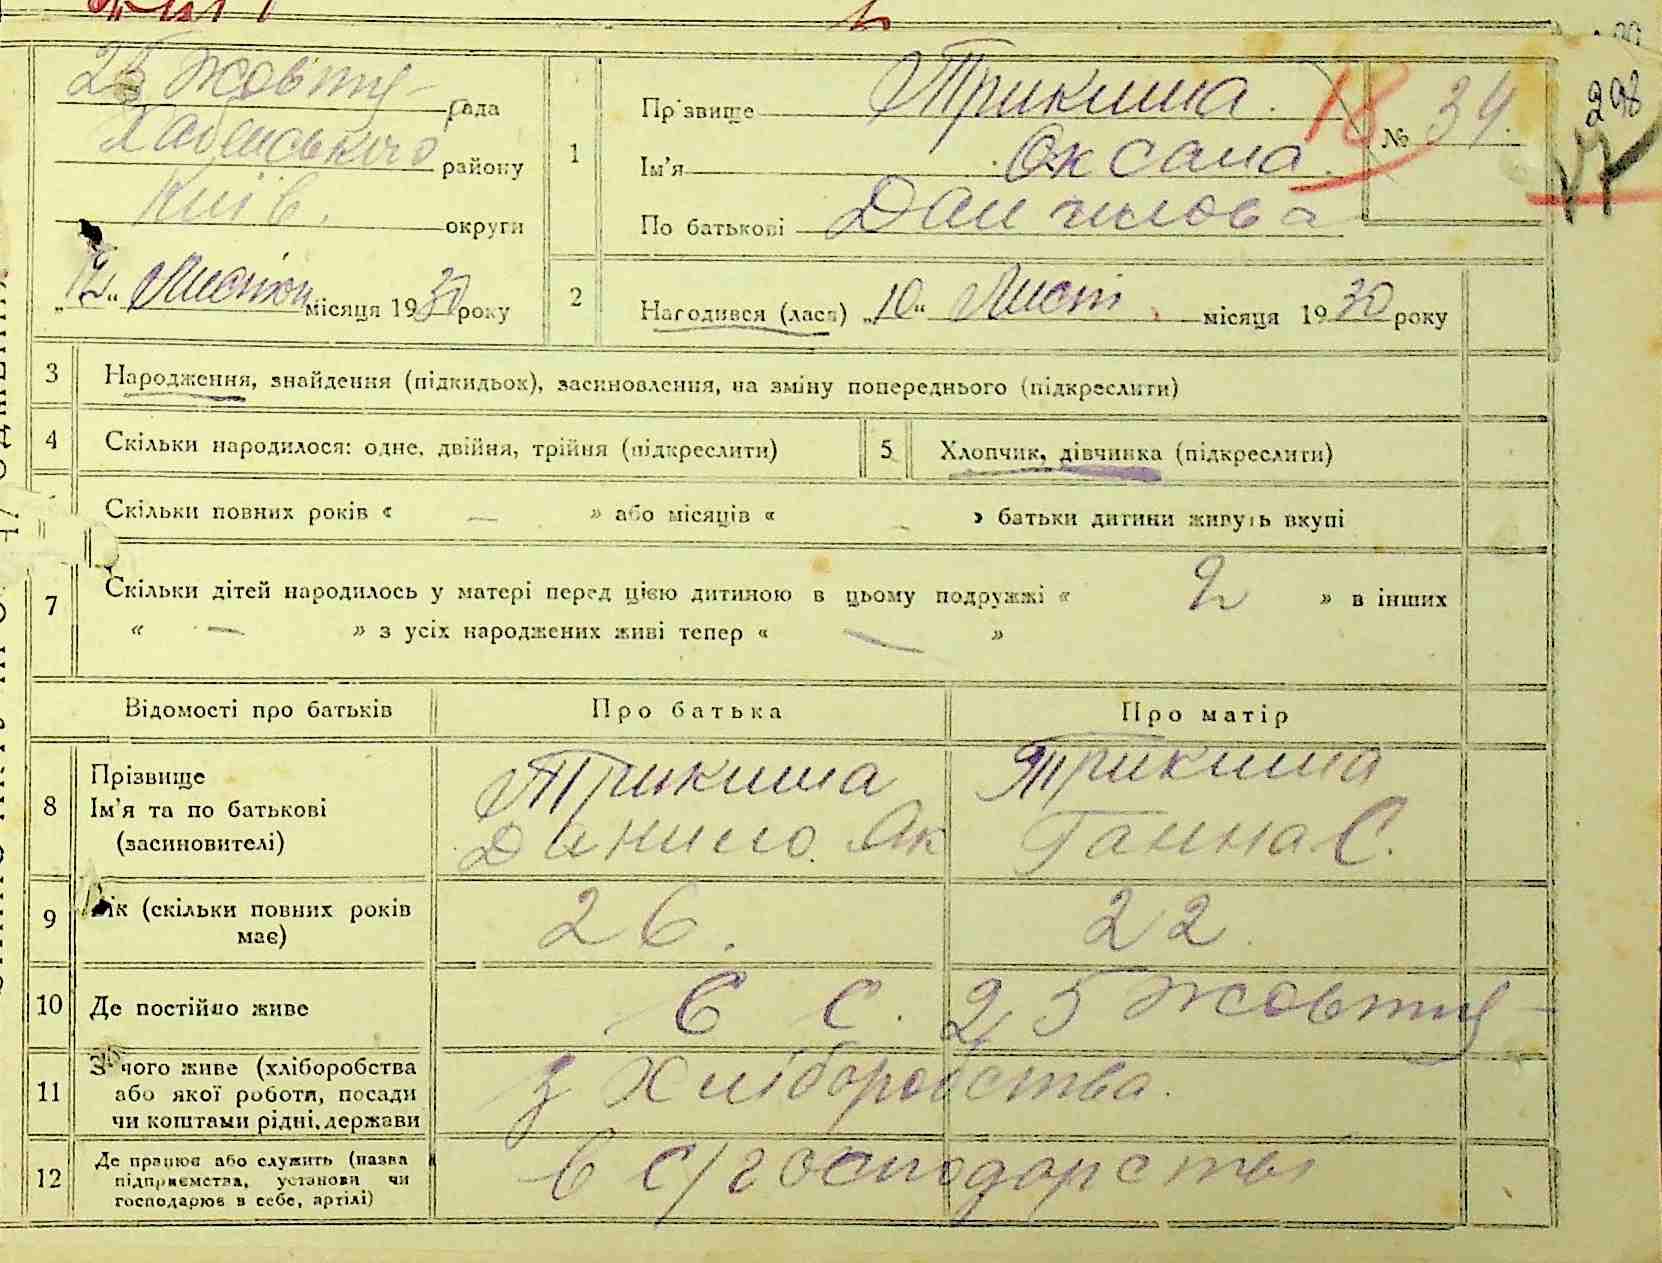 25 Жовтня рада
Хабенського району
Київ. округи
„12“ Листоп місяця 1930 року
1
Прізвище Трикиша.
Ім'я Оксана.
По батькові Данилова
18
№ 34.
298
17
2 Народився (лася) „10“ Лист місяця 1930 року
3 Народження, знайдення (підкидьок), засиновлення, на зміну попереднього (підкреслити)
4 Скільки народилося: одне, двійня, трійня (підкреслити)
5 Хлопчик, дівчинка (підкреслити)
Скільки повних років « — » або місяців « — » батьки дитини живуть вкупі
7 Скільки дітей народилось у матері перед цією дитиною в цьому подружжі « 2 » в інших
« — » з усіх народжених живі тепер « — »
Відомості про батьків Про батька Про матір
8 Прізвище
Ім'я та по батькові
(засиновителі)
Трикиша
Данило Як
Трикиша
Ганна С.
9 Вік (скільки повних років
має)
26. 22.
10 Де постійно живе
в с. 25 Жовтня
11 З чого живе (хліборобства
або якої роботи, посади
чи коштами рідні, держави
з хліборобства.
12 Де працює або служить (назва
підприємства, установи чи
господарює в себе, артілі)
в с/господарстві